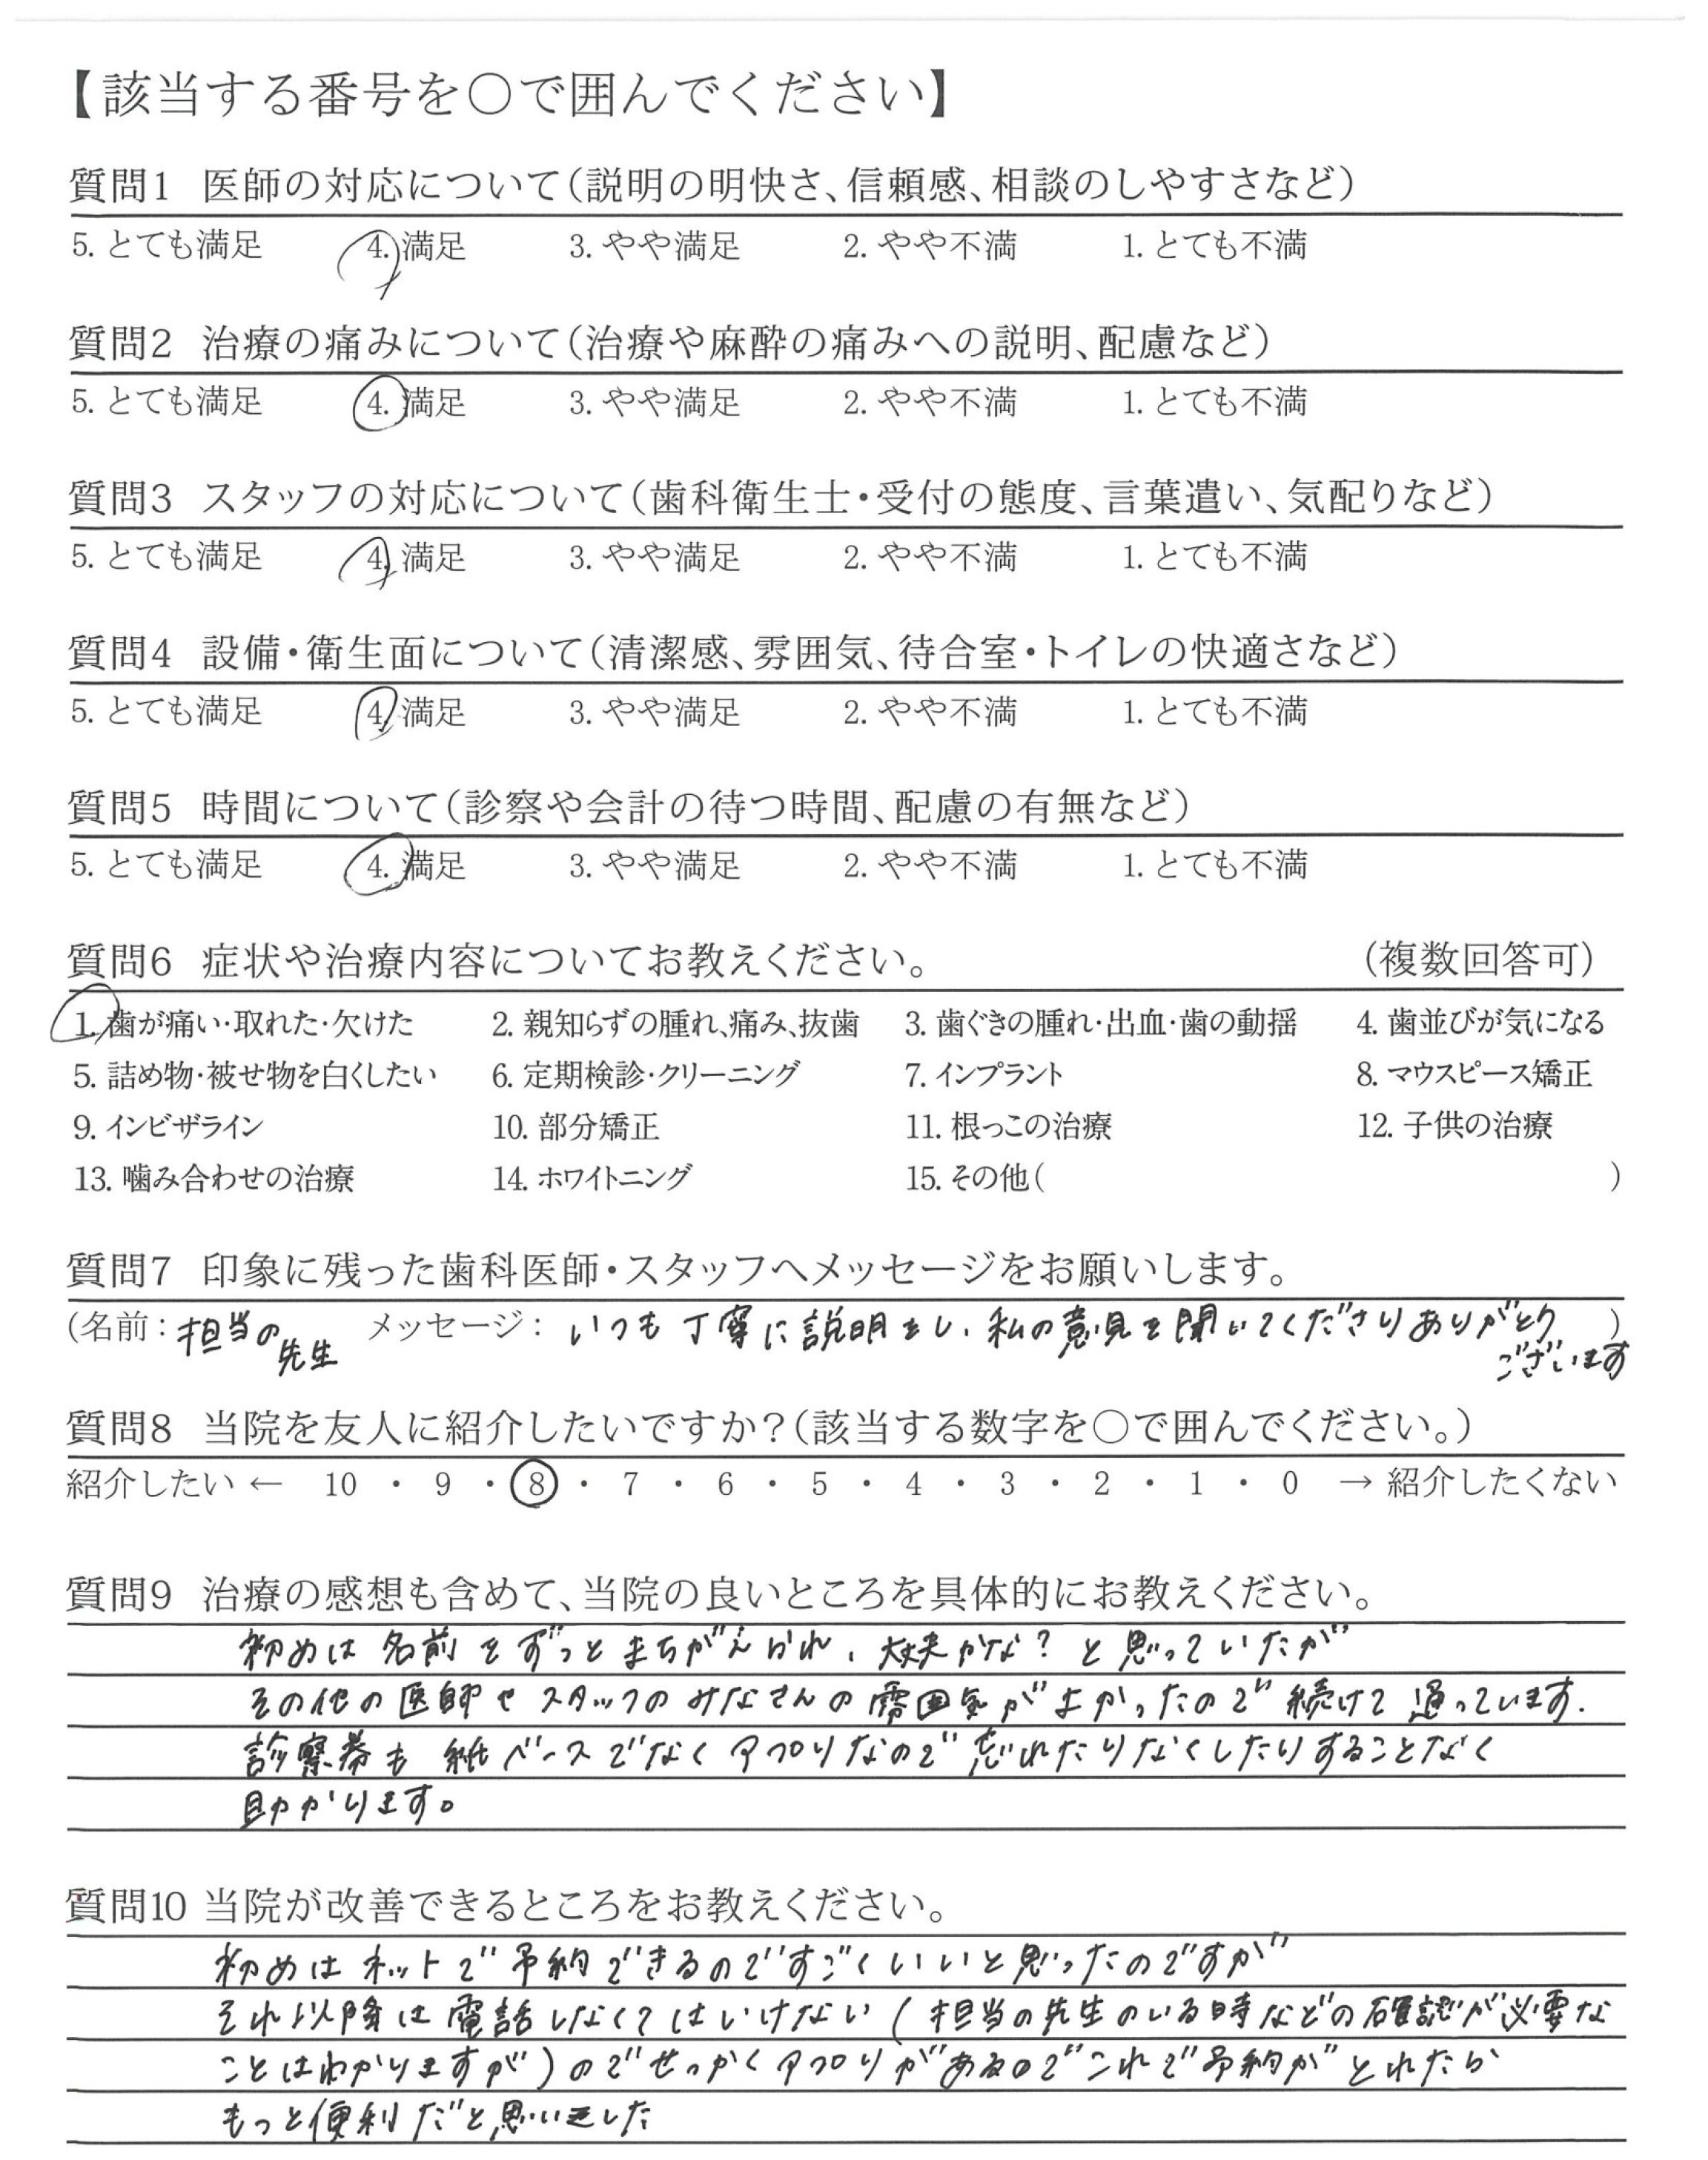 【該当する番号を○で囲んでください】
質問1 医師の対応について(説明の明快さ、信頼感、相談のしやすさなど)
5. とても満足 4. 満足 3. やや満足 2. やや不満 1. とても不満
質問2 治療の痛みについて(治療や麻酔の痛みへの説明、配慮など)
5. とても満足 4. 満足 3. やや満足 2. やや不満 1. とても不満
質問3 スタッフの対応について(歯科衛生士・受付の態度、言葉遣い、気配りなど)
5. とても満足 4. 満足 3. やや満足 2. やや不満 1. とても不満
質問4 設備・衛生面について(清潔感、雰囲気、待合室・トイレの快適さなど)
5. とても満足 4. 満足 3. やや満足 2. やや不満 1. とても不満
質問5 時間について(診察や会計の待つ時間、配慮の有無など)
5. とても満足 4. 満足 3. やや満足 2. やや不満 1. とても不満
質問6 症状や治療内容についてお教えください。 (複数回答可)
1. 歯が痛い・取れた・欠けた 2. 親知らずの腫れ、痛み、抜歯 3. 歯ぐきの腫れ・出血・歯の動揺 4. 歯並びが気になる
5. 詰め物・被せ物を白くしたい 6. 定期検診・クリーニング 7. インプラント 8. マウスピース矯正
9. インビザライン 10. 部分矯正 11. 根っこの治療 12. 子供の治療
13. 噛み合わせの治療 14. ホワイトニング 15. その他( )
質問7 印象に残った歯科医師・スタッフへメッセージをお願いします。
(名前: 担当の先生 メッセージ: いつも丁寧に説明をし、私の意見を聞いてくださりありがとう )
ございます
質問8 当院を友人に紹介したいですか?(該当する数字を○で囲んでください。)
紹介したい ← 10 ・ 9 ・ 8 ・ 7 ・ 6 ・ 5 ・ 4 ・ 3 ・ 2 ・ 1 ・ 0 → 紹介したくない
質問9 治療の感想も含めて、当院の良いところを具体的にお教えください。
初めは名前をずっとまちがえられ、大丈夫かな?と思っていたが
その他の医師やスタッフのみなさんの雰囲気がよかったので続けて通っています.
診察券も紙ベースでなくアプリなので忘れたりなくしたりすることなく
助かります。
質問10 当院が改善できるところをお教えください。
初めはネットで予約できるのですごくいいと思ったのですが
それ以降は電話しなくてはいけない(担当の先生のいる時などの確認が必要な
ことはわかりますが)のでせっかくアプリがあるのでこれで予約がとれたら
もっと便利だと思いました